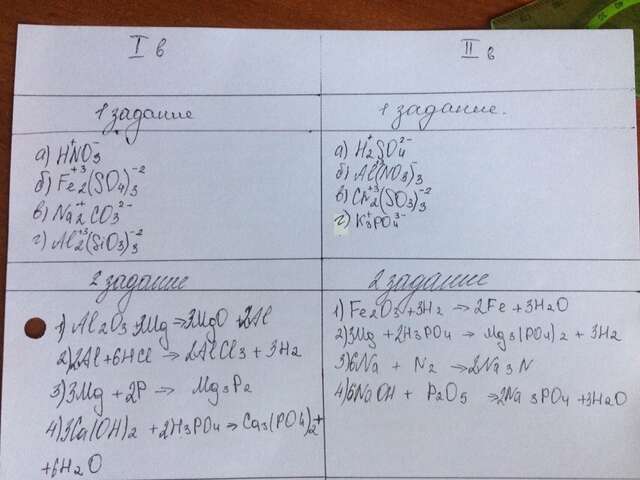 I в
II в
1 задание
1 задание.
а) H⁺NO₃⁻
б) Fe₂⁺³(SO₄)₃⁻²
в) Na₂⁺CO₃²⁻
г) Al₂⁺³(SiO₃)₃⁻²
а) H₂⁺SO₄²⁻
б) Al⁺³(NO₃)₃⁻
в) Cr₂⁺³(SO₃)₃⁻²
г) K₃⁺PO₄³⁻
2 задание
2 задание
1) Al₂O₃ + 3Mg ⇒ 3MgO + 2Al
2) 2Al + 6HCl ⇒ 2AlCl₃ + 3H₂
3) 3Mg + 2P ⇒ Mg₃P₂
4) 3Ca(OH)₂ + 2H₃PO₄ ⇒ Ca₃(PO₄)₂ +
+ 6H₂O
1) Fe₂O₃ + 3H₂ ⇒ 2Fe + 3H₂O
2) 3Mg + 2H₃PO₄ → Mg₃(PO₄)₂ + 3H₂
3) 6Na + N₂ ⇒ 2Na₃N
4) 6NaOH + P₂O₅ ⇒ 2Na₃PO₄ + 3H₂O